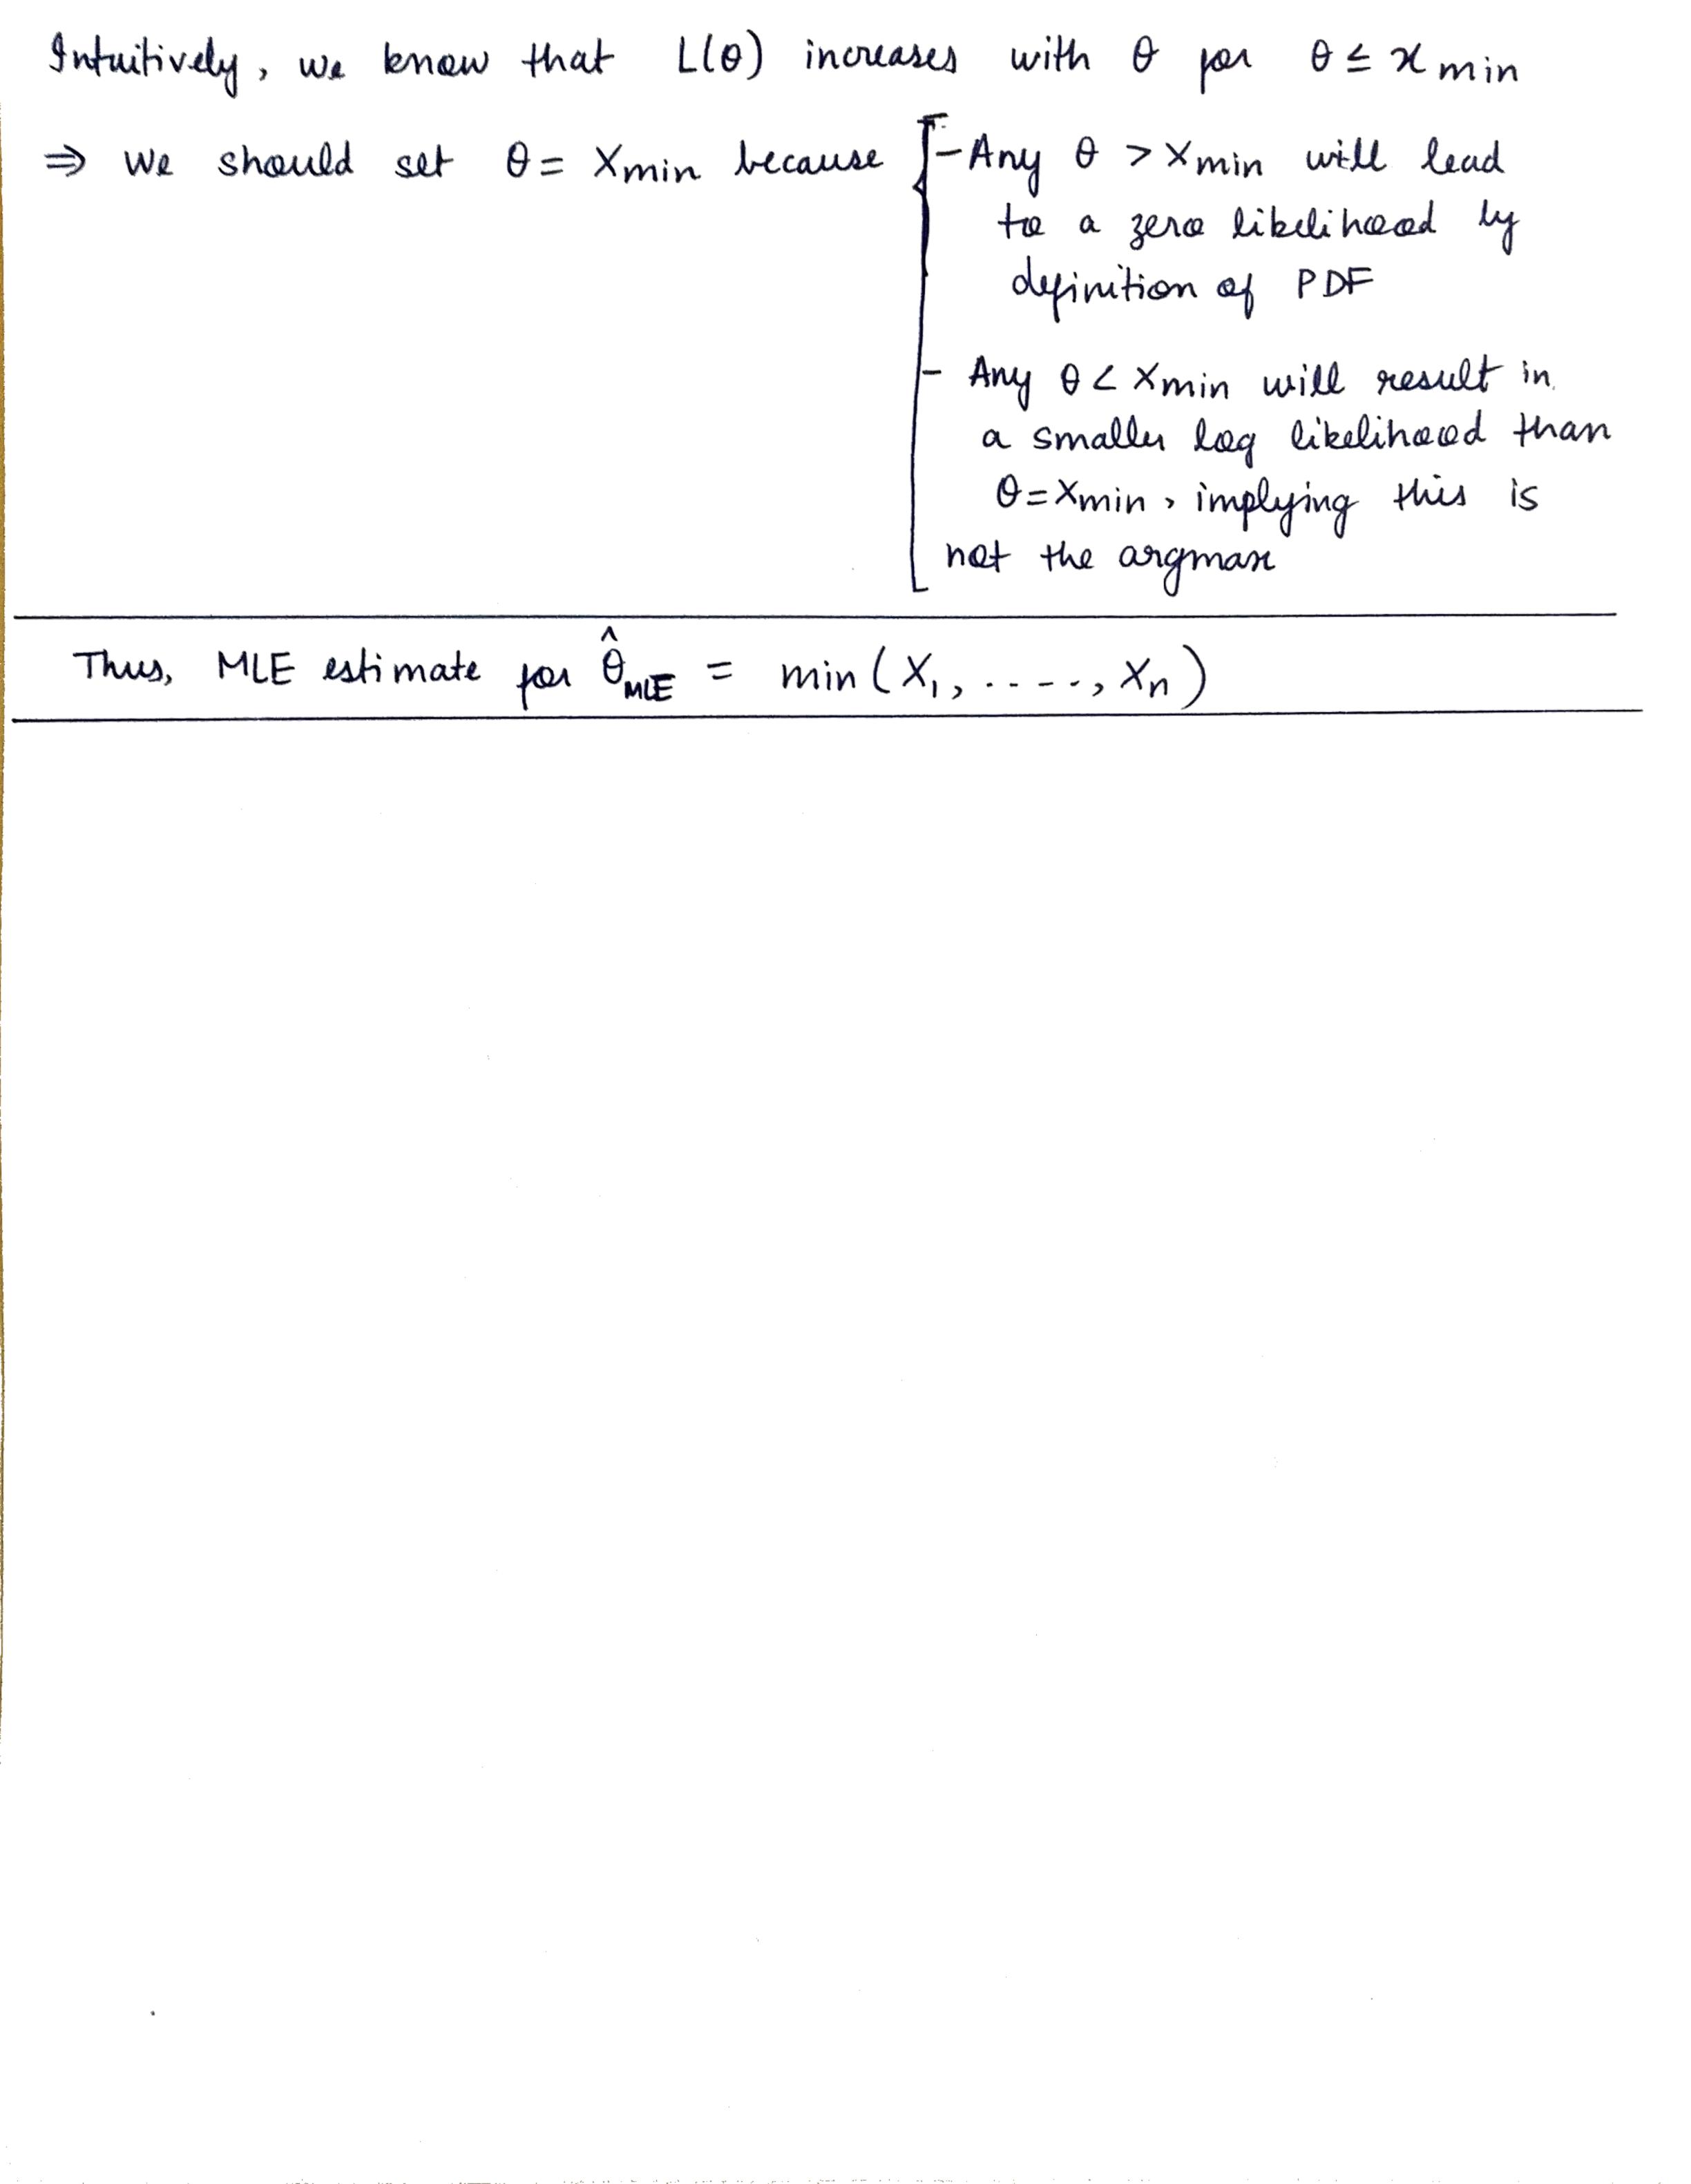 Intuitively, we know that L(θ) increases with θ for θ ≤ x min
⇒ We should set θ = Xmin because - Any θ > Xmin will lead
to a zero likelihood by
definition of PDF
- Any θ < Xmin will result in
a smaller log likelihood than
θ = Xmin, implying this is
not the argmax
Thus, MLE estimate for θ̂MLE = min(X1, ....., Xn)